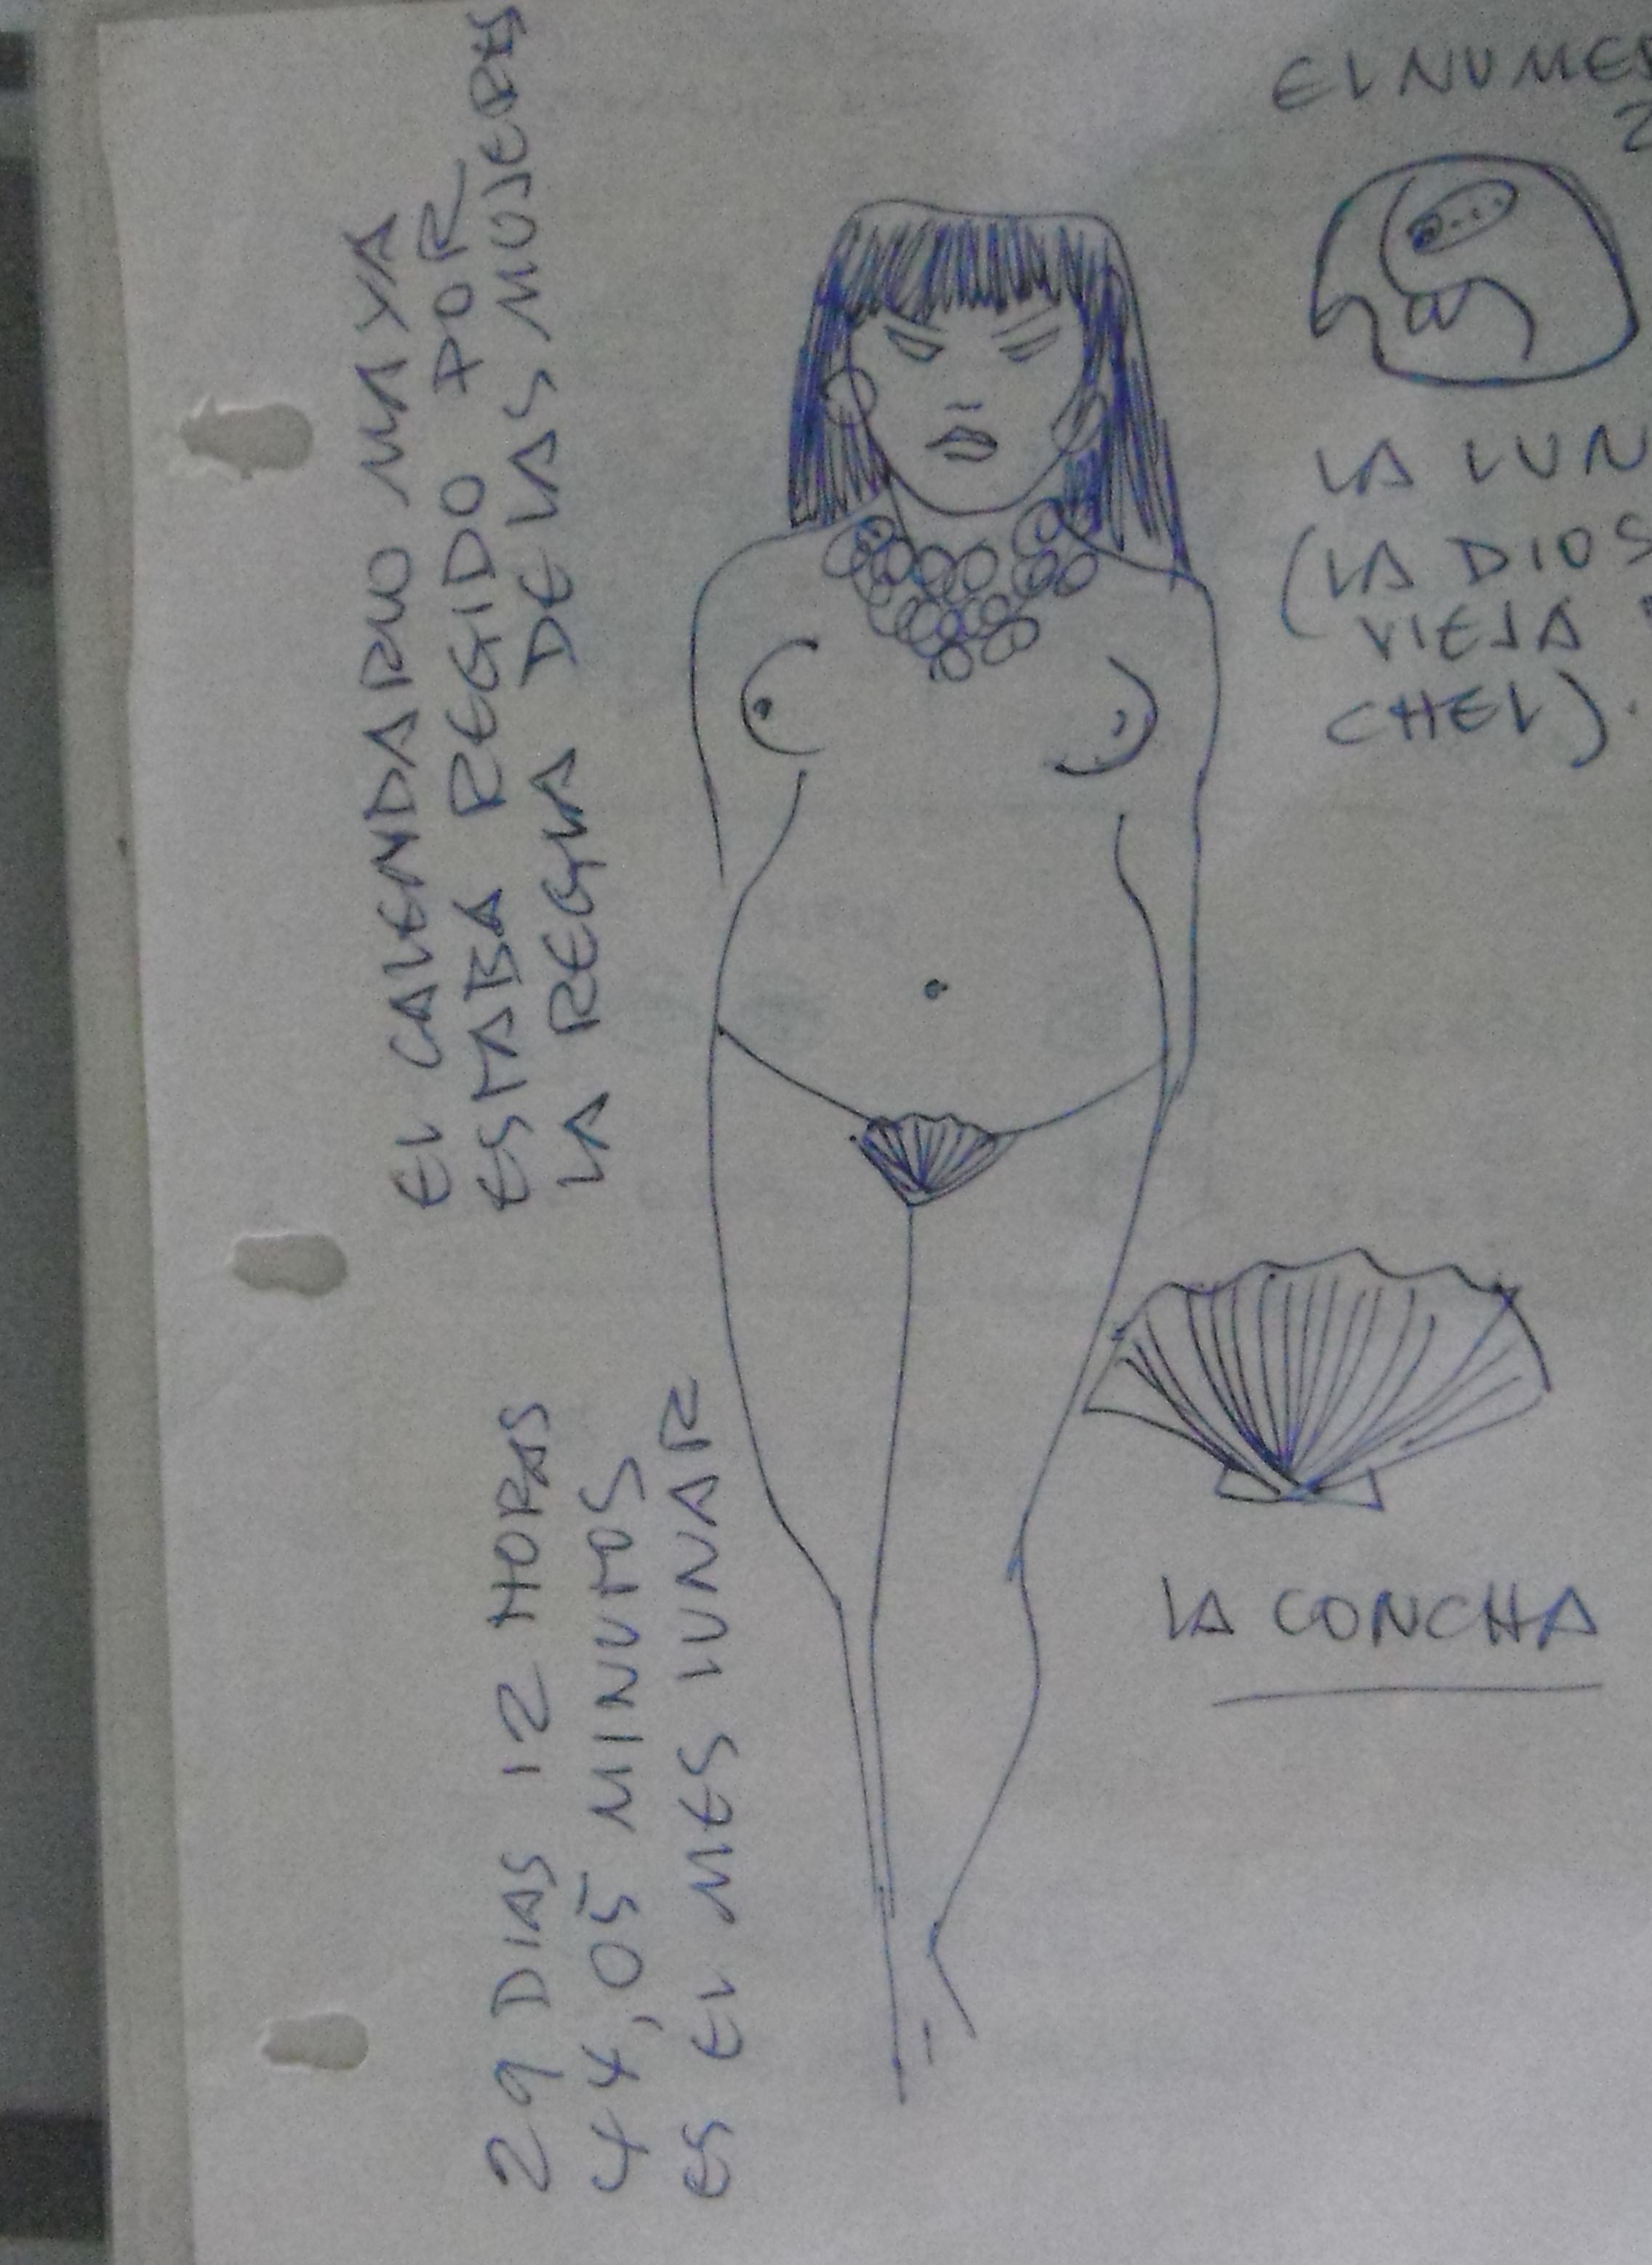 EL CALENDARIO MAYA
ESTABA REGIDO POR
LA REGLA DE LAS MUJERES
29 DIAS 12 HORAS
44,05 MINUTOS
ES EL MES LUNAR
EL NUMER
2
LA LUN
(LA DIOS
VIEJA
CHEL).
LA CONCHA